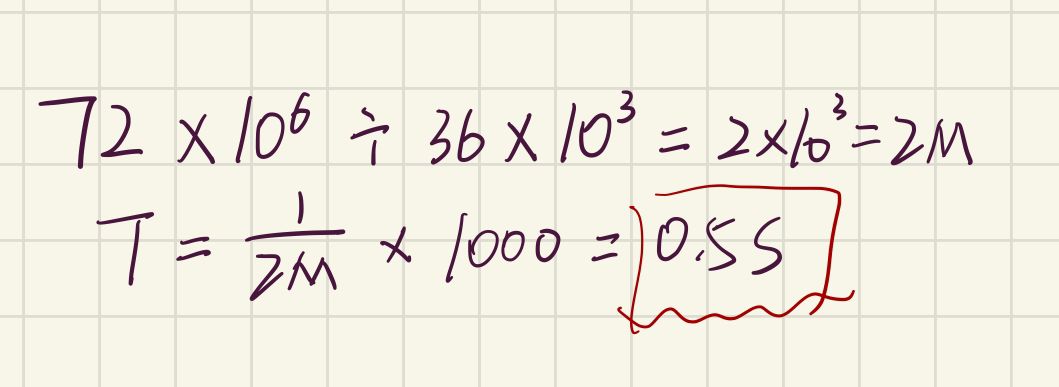 72 × 10⁶ ÷ 36 × 10³ = 2×10³ = 2M
T = 1/2M × 1000 = 0.5S